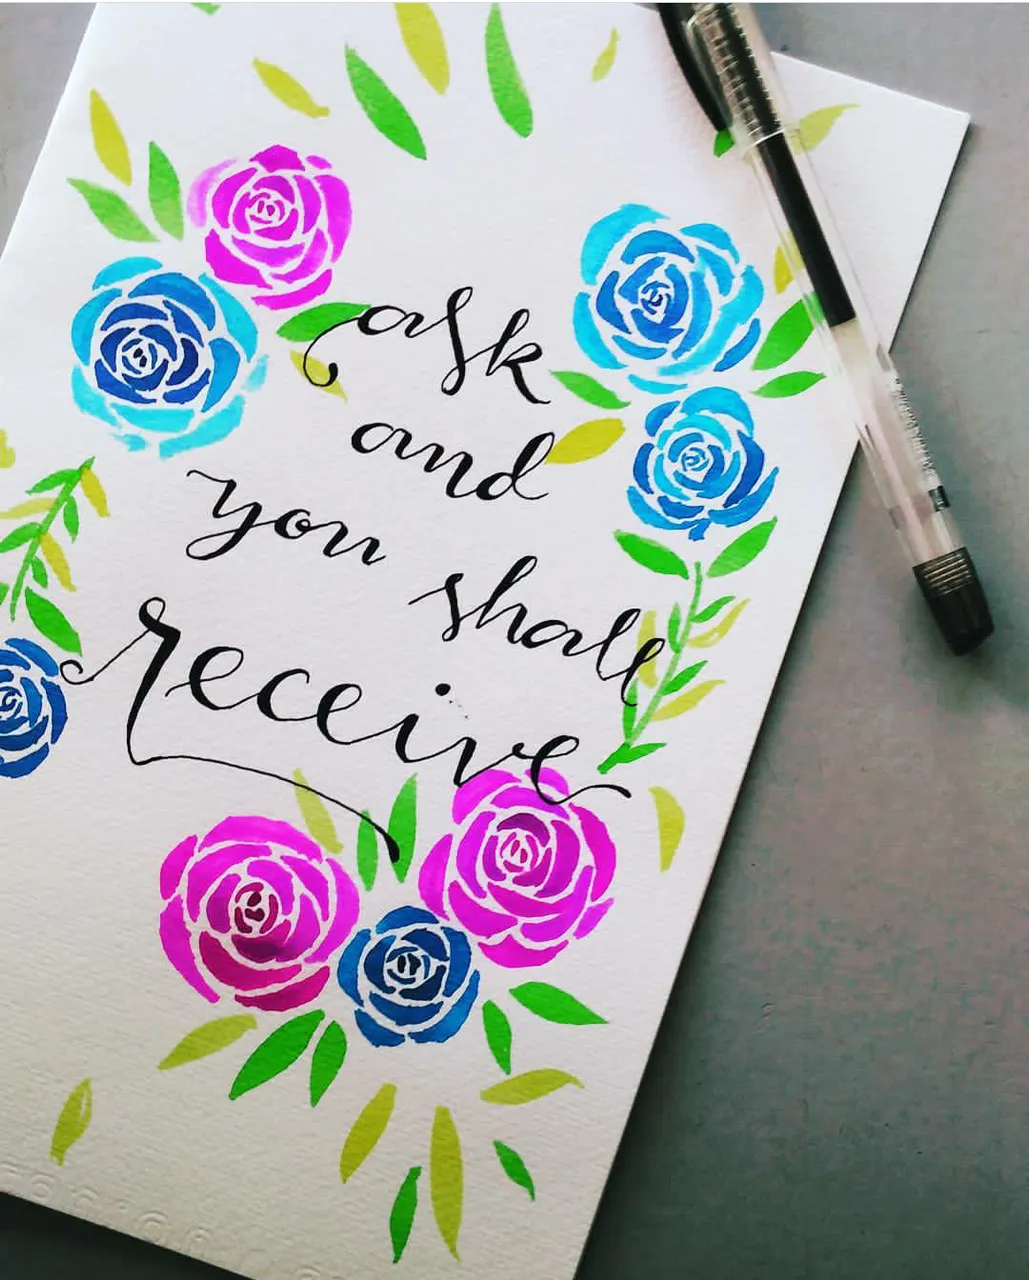 ask
and
you
shall
receive